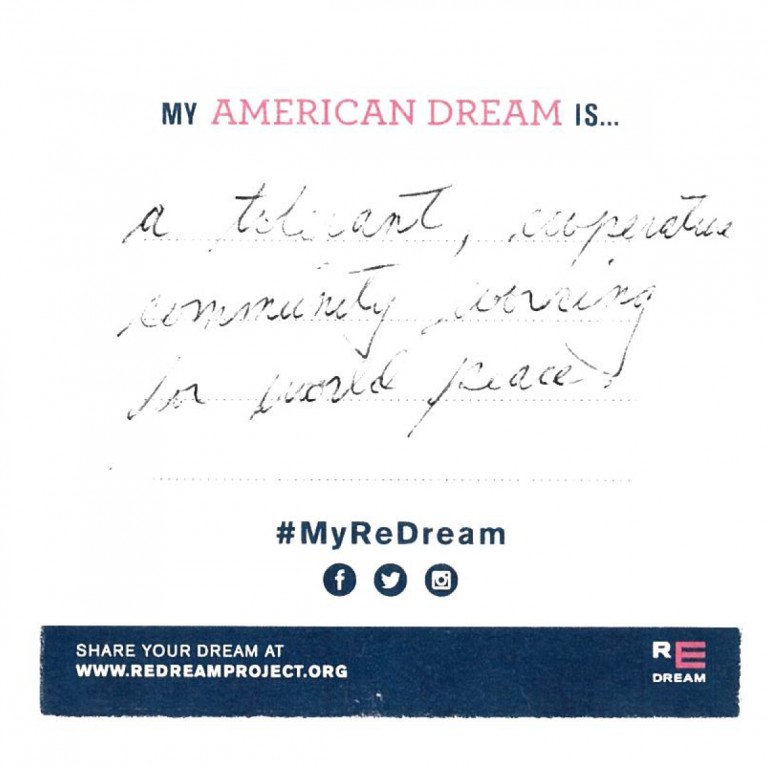 MY AMERICAN DREAM IS...
a tolerant, cooperative
community working
for world peace.
#MyReDream
SHARE YOUR DREAM AT
WWW.REDREAMPROJECT.ORG
RE
DREAM